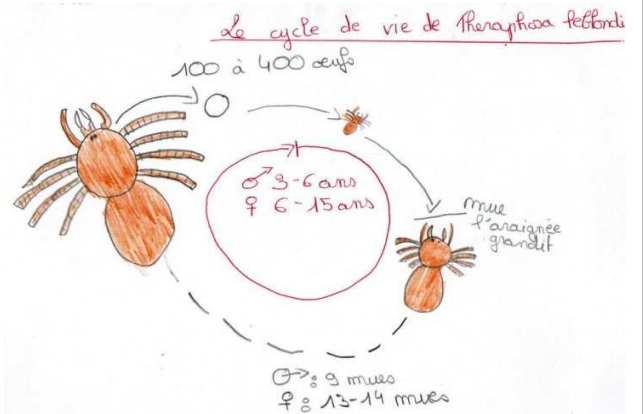 Le cycle de vie de Theraphosa leblondi
100 à 400 œufs
♂ 3-6 ans
♀ 6-15 ans
mue
l'araignée
grandit
♂: 9 mues
♀: 13-14 mues